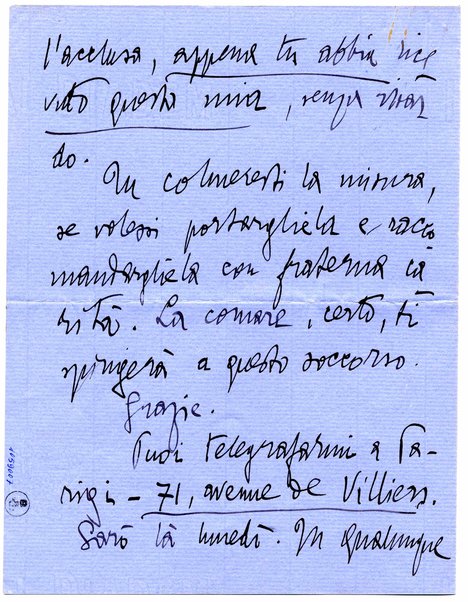 l'acclusa, appena tu abbia rice
vuto questa mia, senza ritar
do.
Tu colmeresti la misura,
se volessi portargliela e racco
mandargliela con fraterna ca
rità. La comare, certo, ti
spingerà a questo soccorso.
Grazie.
Puoi telegrafarmi a Pa-
rigi - 71, avenue de Villiers.
Sarò là lunedì. In qualunque